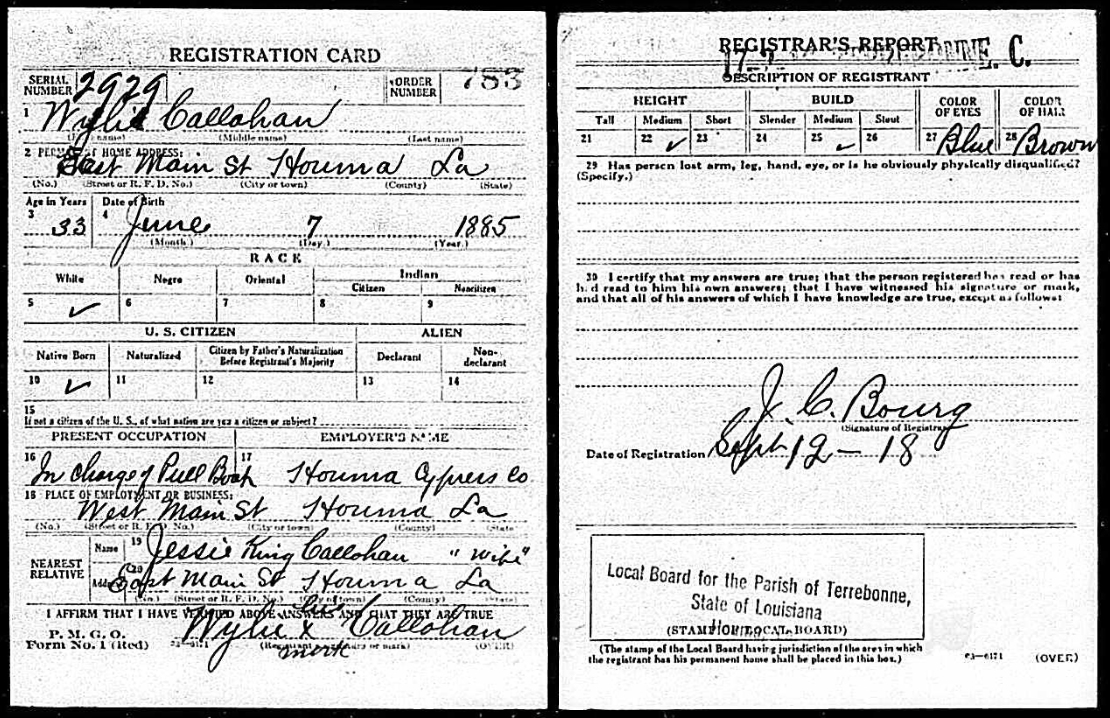 REGISTRATION CARD
SERIAL NUMBER 2929 ORDER NUMBER 783
1 Wylie Callohan
(First name) (Middle name) (Last name)
2 PERMANENT HOME ADDRESS:
East Main St Houma La
(No.) (Street or R. F. D. No.) (City or town) (County) (State)
Age in Years Date of Birth
3 33 4 June 7 1885
(Month.) (Day.) (Year.)
RACE
White Negro Oriental Indian
Citizen Noncitizen
5 ✓ 6 7 8 9
U. S. CITIZEN ALIEN
Native Born Naturalized Citizen by Father's Naturalization Before Registrant's Majority Declarant Non-declarant
10 ✓ 11 12 13 14
15
If not a citizen of the U. S., of what nation are you a citizen or subject?
PRESENT OCCUPATION EMPLOYER'S NAME
16 In charge of Pull Boat 17 Houma Cypress Co.
18 PLACE OF EMPLOYMENT OR BUSINESS:
West Main St Houma La
(No.) (Street or R. F. D. No.) (City or town) (County) (State)
NEAREST RELATIVE
Name 19 Jessie King Callohan "wife"
Address 20 East Main St Houma La
(No.) (Street or R. F. D. No.) (City or town) (County) (State)
I AFFIRM THAT I HAVE VERIFIED ABOVE ANSWERS AND THAT THEY ARE TRUE
P. M. G. O.
Form No. 1 (Red) 03—6171
Wylie his x mark Callohan
(Registrant's signature or mark) (OVER)
REGISTRAR'S REPORT
E. C.
DESCRIPTION OF REGISTRANT
HEIGHT BUILD COLOR OF EYES COLOR OF HAIR
Tall Medium Short Slender Medium Stout
21 22 ✓ 23 24 25 ✓ 26 27 Blue 28 Brown
29 Has person lost arm, leg, hand, eye, or is he obviously physically disqualified?
(Specify.)
30 I certify that my answers are true; that the person registered has read or has
had read to him his own answers; that I have witnessed his signature or mark,
and that all of his answers of which I have knowledge are true, except as follows:
J. C. Bourg
(Signature of Registrar)
Date of Registration Sept 12 – 18
Local Board for the Parish of Terrebonne,
State of Louisiana
(STAMP OF LOCAL BOARD)
(The stamp of the Local Board having jurisdiction of the area in which
the registrant has his permanent home shall be placed in this box.)
03—6171 (OVER)